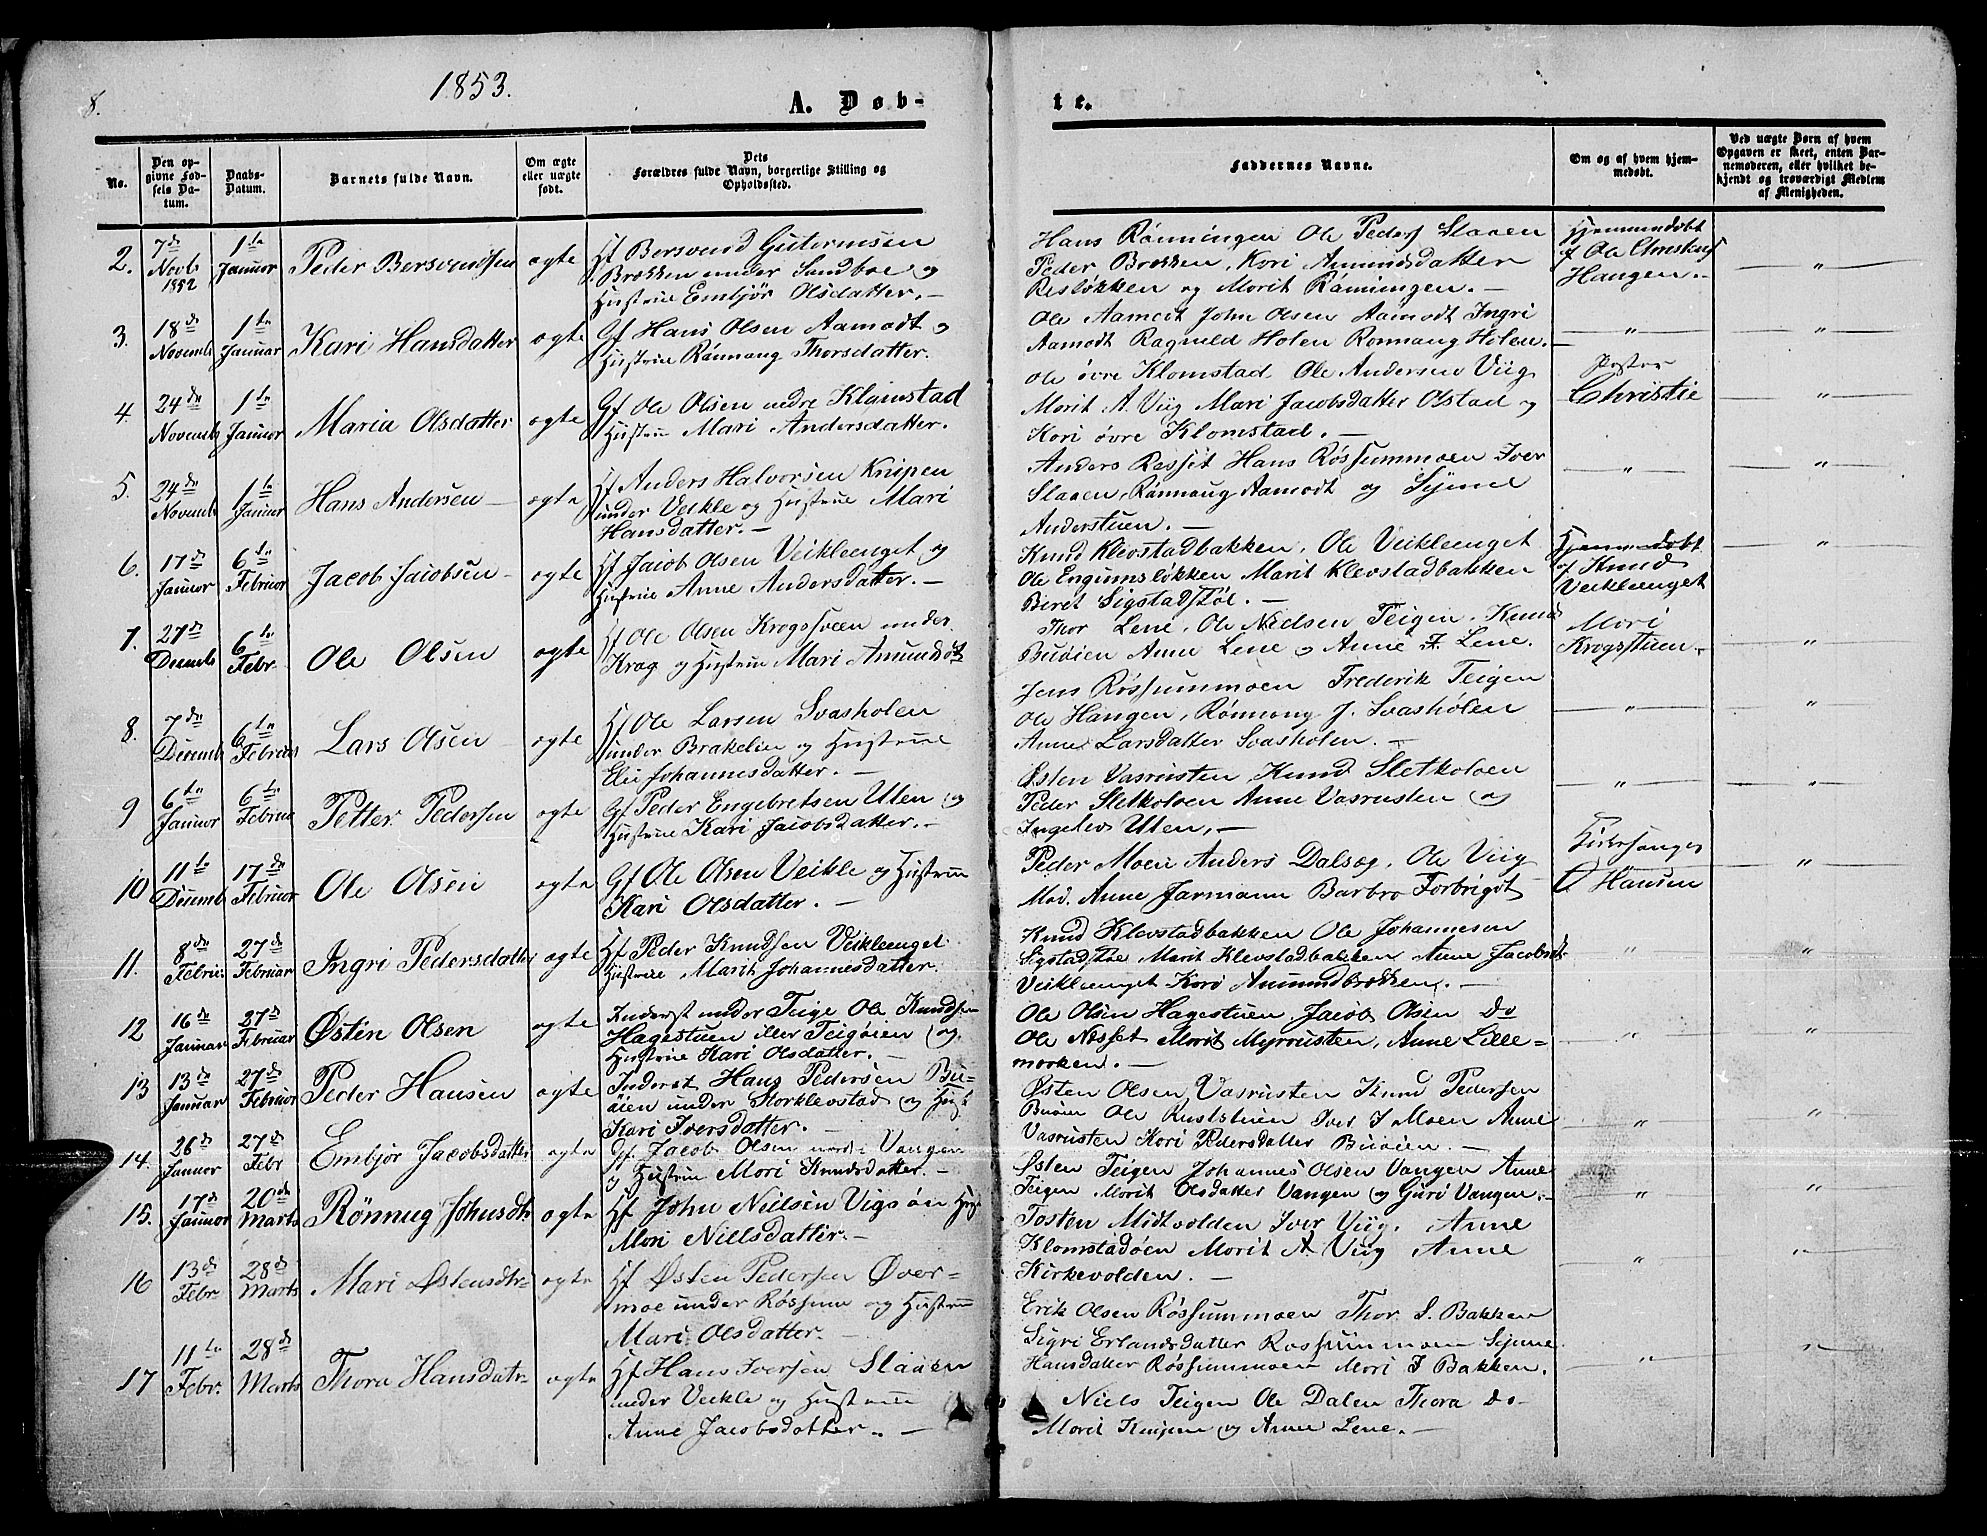 8.
1853.
A. Døb-
te.
No.
Den op-
givne Fød-
sels Da-
tum.
Daabs-
Datum.
Barnets fulde Navn.
Om ægte
eller uægte
født.
Dets
Forældres fulde Navn, borgerlige Stilling og
Opholdssted.
Faddernes Navne.
Om og af hvem hjem-
medøbt.
Ved uægte Børn af hvem
Opgaven er skeet, enten Bar-
nemoderen, eller hvilket be-
kjendt og troværdigt Medlem
af Menigheden.
2.
7de
Novb
1852
1te
Januar
Peder Bersvendsen
ægte
Hf Bersvend Guttormsen
Brækken under Sandboe og
Hustrue Embjør Olsdatter. —
Hans Rønningen Ole Peders Slaaen
Peder Brækken, Kari Amundsdatter
Resløkken og Marit Rønningen. —
Hjemmedøbt
af Ole Christens
Haugen. —
— " —
3.
18de
Novemb
1te
Januar
Kari Hansdatter
ægte
Gf Hans Olsen Aamodt og
Hustrue Rønnaug Thorsdatter.
Ole Aamodt John Olsen Aamodt Ingri
Aamodt Ragnild Holen Rønnaug Holen. —
— " —
— " —
4.
24de
Novemb
1te
Januar
Maria Olsdatter
ægte
Gf Ole Olsen nedre Klomstad
Hustrue Mari Andersdatter.
Ole øvre Klomstad Ole Andersen Viig
Morit A. Viig Mari Jacobsdatter Olstad og
Kari øvre Klomstad. —
Pastor
Christie
— " —
5.
24de
Novemb
1te
Januar
Hans Andersen —
ægte
Hf Anders Halvorsen Knipen
under Veikle og Hustrue Mari
Hansdatter. —
Anders Resset Hans Røssummoen Iver
Slaaen, Rønnaug Aamodt og Synne
Anderstuen. —
— " —
— " —
6.
17de
Januar
6te
Februar
Jacob Jacobsen —
ægte
Hf Jacob Olsen Veikleenget og
Hustrue Anne Andersdatter. —
Knud Klevstadbakken, Ole Veikleenget
Ole Engumsløkken Marit Klevstadbakken
Beret Sigstadstøe. —
Hjemmedøbt
af Knud
Veikleenget
— " —
7.
27de
Decemb
6te
Febr.
Ole Olsen
ægte
Hf Ole Olsen Krogssveen under
Krog og Hustrue Mari Amundsdt
Thor Lene, Ole Nielsen Teigen, Knud
Buøien Anne Lene og Anne I. Lene.
Mari
Krogsstuen. —
— " —
8.
7de
Decemb
6te
Februar
Lars Olsen —
ægte
Hf Ole Larsen Svasholen
under Brakelien og Hustrue
Elie Johannesdatter. —
Jens Røssummoen Frederik Teigen
Ole Haugen, Rønnaug J. Svasholen
Anne Larsdatter Svasholen. —
— " —
"
9
6te
Januar
6te
Februar
Petter Pedersen
ægte
Gf Peder Engebretsen Uten og
Hustrue Kari Jacobsdatter. —
Østen Vasrusten, Knud Sletkoloen
Peder Sletkoloen Anne Vasrusten og
Ingeleiv Uten. —
— " —
— " —
10
11te
Decemb
17de
Februar
Ole Olsen
ægte
Gf Ole Olsen Veikle og Hustrue
Kari Olsdatter. —
Peder Moen Anders Dalsæg. Ole Viig
Mad. Anne Jarmann Barbro Forbrigdt
Kirkesanger
O Hansen
"
11.
8de
Februar
27de
Februar
Ingri Pedersdatter
ægte
Hf Peder Knudsen Veikleenget
Hustrue Marit Johannesdatter.
Knud Klevstadbakken Ole Johannesen
Sigstadstøe Marit Klevstadbakken Anne Jacobsdt
Veikleenget Kari Amundbrækken. —
"
"
12
16de
Januar
27de
Februar
Østen Olsen
ægte
Inderst under Teige Ole Knudsen
Hagestuen eller Teigøien og
Hustrue Kari Olsdatter. —
Ole Olsen Hagestuen, Jacob Olsen Do
Ole Næsset Marit Myrrusten, Anne Lille-
morken. —
"
"
13
13de
Januar
27de
Februar
Peder Hansen
ægte
Inderst Hans Pedersen Bu-
øien under Storklevstad og Hust
Kari Iversdatter. —
Østen Olsen Vasrusten Knud Pedersen
Buøien Ole Rustestuen Iver I Moen Anne
Vasrusten Kari Pedersdatter Buøien —
"
"
14.
26de
Januar
27de
Febr
Embjør Jacobsdatter
ægte
Gf. Jacob Olsen nordre Vangen
og Hustrue Mari Knudsdatter. —
Østen Teigen Johannes Olsen Vangen Anne
Teigen Marit Olsdatter Vangen og Guri Vangen. —
"
"
15.
17de
Januar
20de
Marts
Rønnug Johnsdtr
ægte
Hf John Nielsen Vigsøien Hust
Mari Nielsdatter. —
Tosten Midtvolden Iver Viig. Anne
Klomstadøen Marit A Viig Anne
Kirkevolden. —
"
"
16
13de
Febr
28de
Marts
Mari Østensdtr.
ægte
Hf Østen Pedersen Øver-
moe under Røssum og Hustrue
Mari Olsdatter. —
Erik Olsen Røssummoen Thor S. Bakken
Sigri Erlandsdatter Røssummoen Synne
Hansdatter Røssummoen Mari I Bakken.
"
"
17
11te
Febr.
28de
Marts
Thora Hansdatr.
ægte
Hf Hans Iversen Slaaen
under Veikle og Hustrue
Anne Jacobsdatter. —
Niels Teigen Ole Dalen Thora do
Marit Knipen og Anne Lene. —